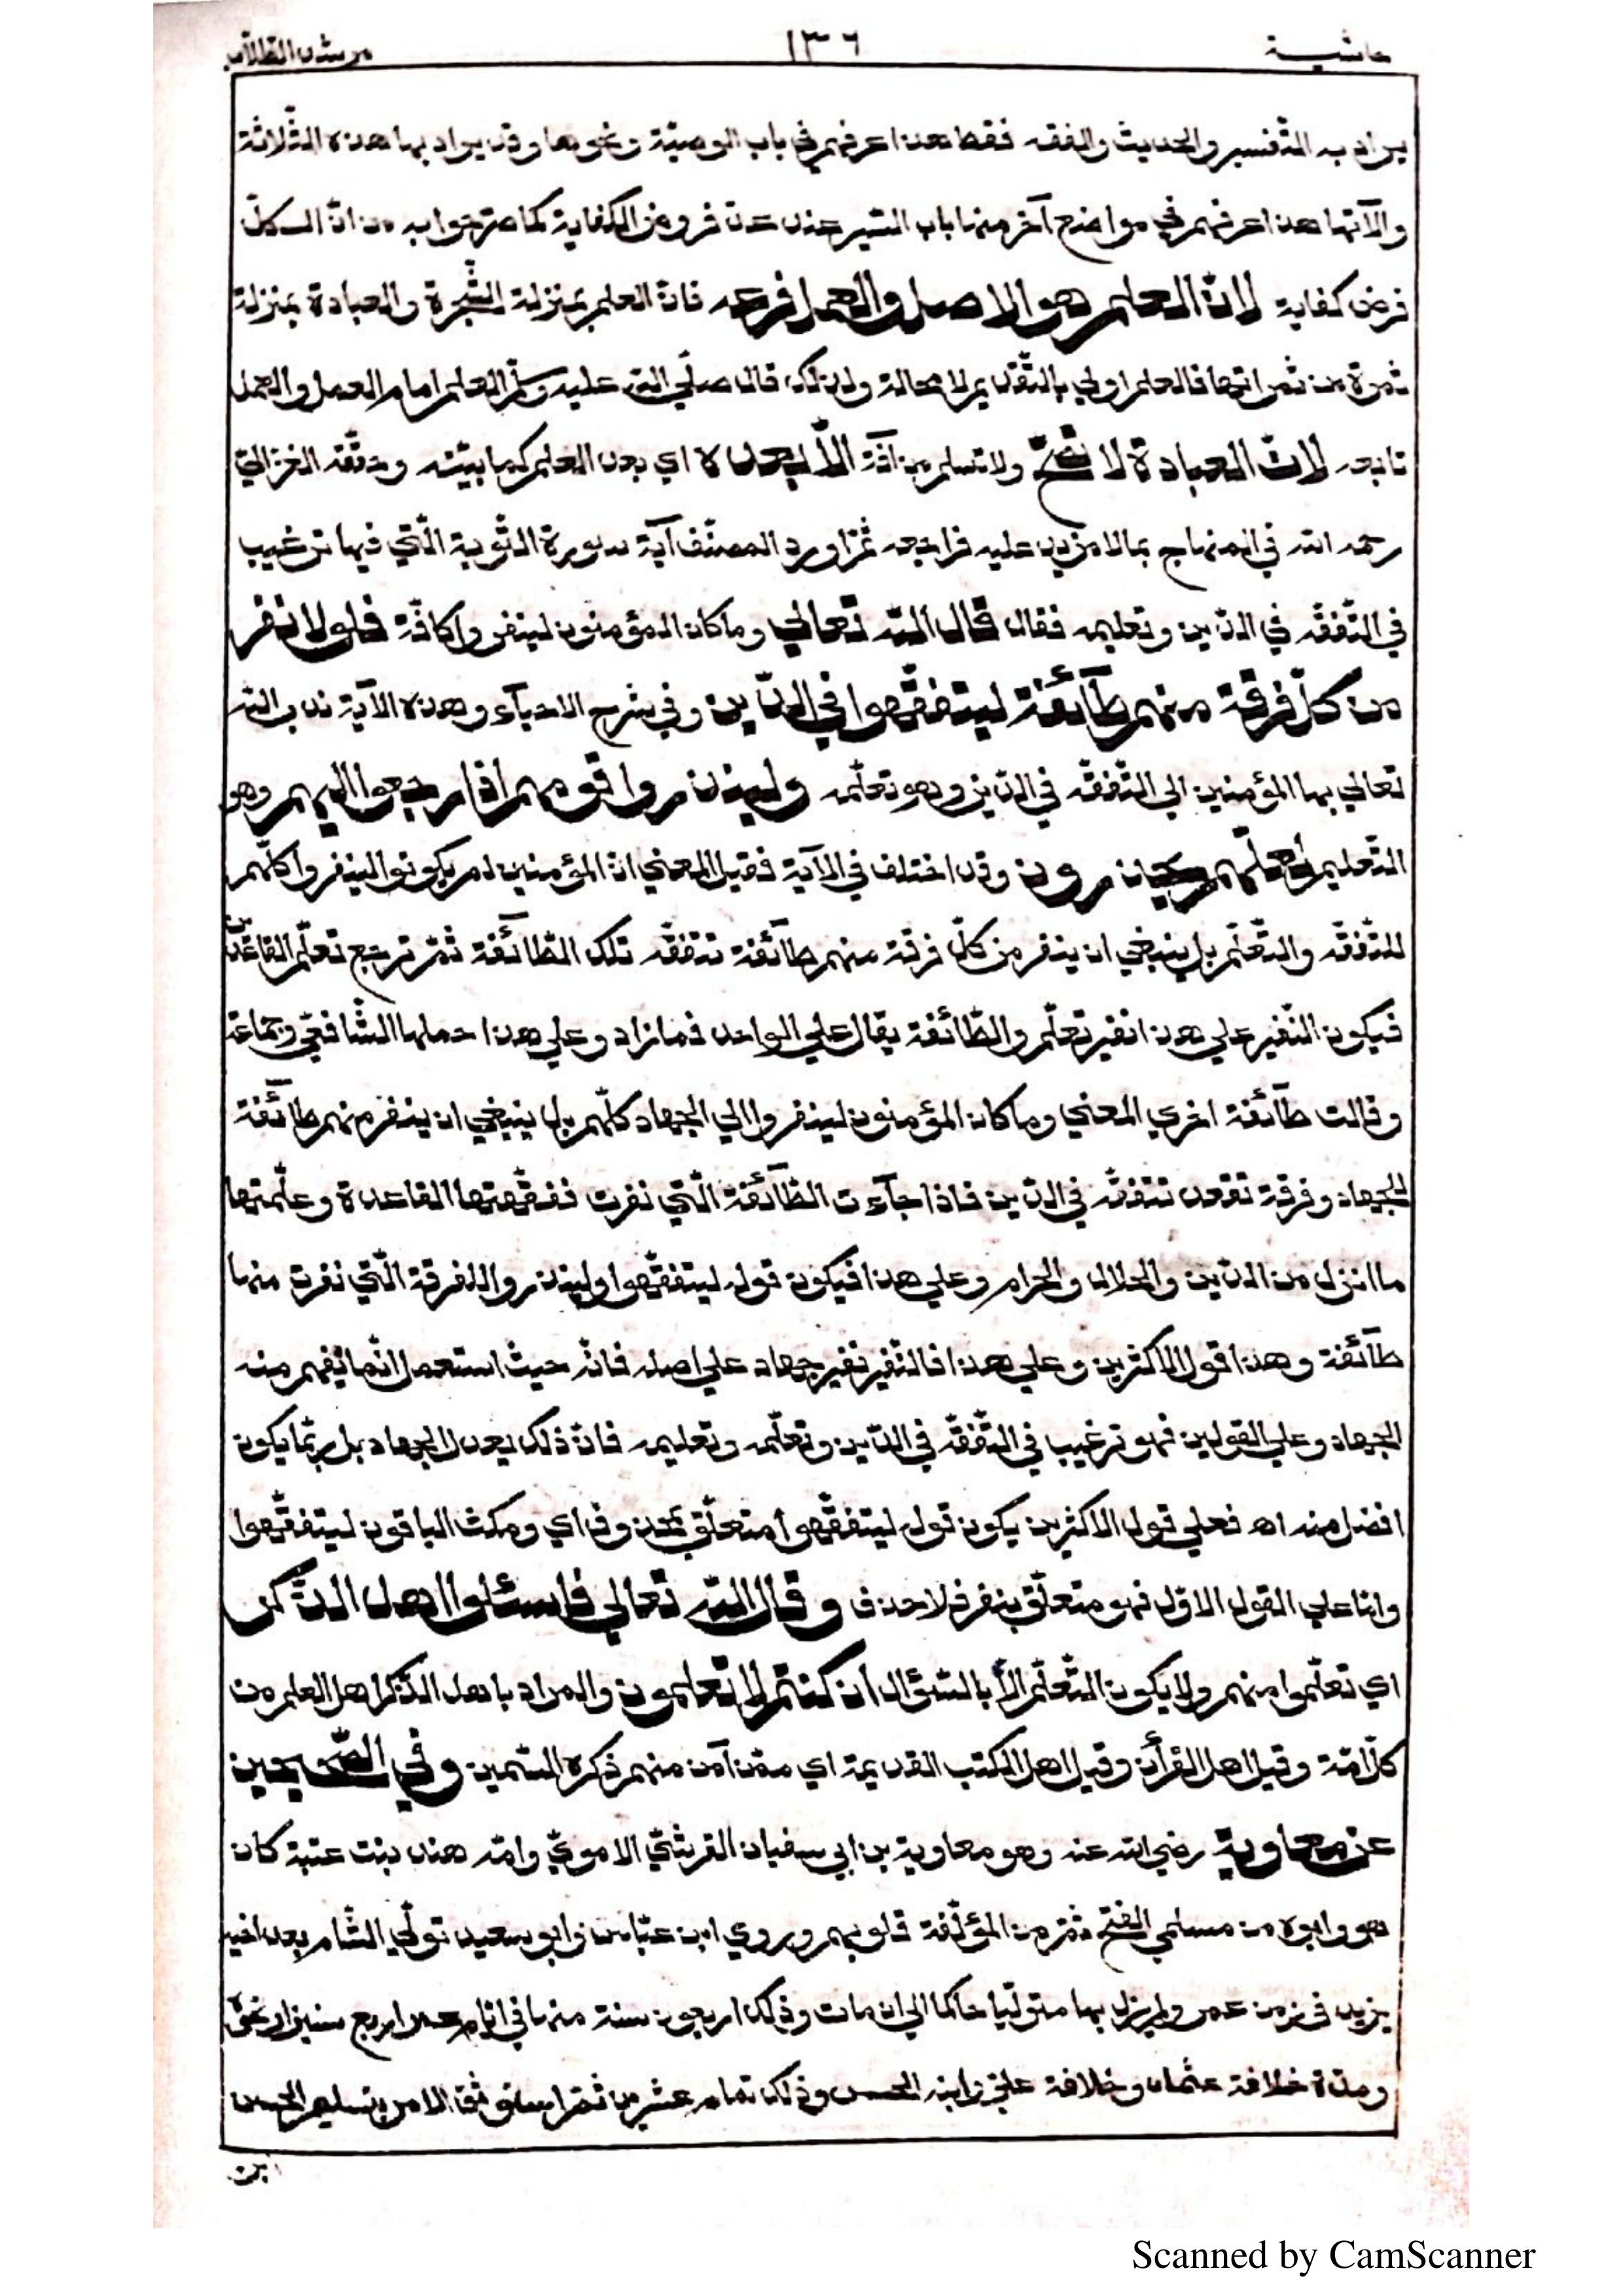 حاشية ١٣٦ مرشد الطلاب
يراد به التفسير والحديث والفقه فقط هذا عرفهم في باب الوصيّة ونحوها وقد يراد بها هذه الثّلاثة
والآتها هذا عرفهم في مواضع آخر منها باب السّير عند عدّ فروض الكفاية كما مرّ جوابه من انّ الكلّ
فرض كفاية لانّ العلم هو الاصل والعمل فرعه فانّ العلم بمنزلة الشّجرة والعبادة بمنزلة
ثمرة من ثمراتها فالعلم اولي بالتّقديم لا محالة ولذلك قال صلّي الله عليه وسلّم العلم امام العمل والعمل
تابعه لانّ العبادة لا تصحّ ولا تسلم من آفة الّا بعده اي بعد العلم كما بيّنه وحقّقه الغزاليّ
رحمه الله في المنهاج بما لا مزيد عليه فراجعه ثمّ اورد المصنّف آية سورة التّوبة الّتي فيها ترغيب
في التّفقّه في الدّين وتعليمه فقال قال الله تعالي وما كان المؤمنون لينفروا كافّة فلولا نفر
من كلّ فرقة منهم طآئفة ليتفقّهوا في الدّين وفي شرح الاحيآء وهذه الآية ندب الله
تعالي بها المؤمنين الي التّفقّه في الدّين وهو تعلّمه ولينذروا قومهم اذا رجعوا اليهم وهو
التّعليم لعلّهم يحذرون وقد اختلف في الآية فقيل المعني انّ المؤمنين لم يكونوا لينفروا كلّهم
للتّفقّه والتّعلّم بل ينبغي ان ينفر من كلّ فرقة منهم طآئفة تتفقّه تلك الطّآئفة ثمّ ترجع تعلّم القاعدين
فيكون النّفير علي هذا نفير تعلّم والطّائفة يقال علي الواحد فما زاد وعلي هذا حملها الشّافعيّ وجماعة
وقالت طآئفة اخري المعني وما كان المؤمنون لينفروا الي الجهاد كلّهم بل ينبغي ان ينفر منهم طآئفة
للجهاد وفرقة تقعد تتفقّه في الدّين فاذا جآءت الطّآئفة الّتي نفرت ففقّهتها القاعدة وعلّمتها
ما انزل من الدّين والحلال والحرام وعلي هذا فيكون قوله ليتفقّهوا ولينذروا للفرقة الّتي نفرت منها
طآئفة وهذا قول الاكثرين وعلي هذا فالنّفير نفير جهاد علي اصله فانّه حيث استعمل انّما يفهم منه
الجهاد وعلي القولين فهو ترغيب في التّفقّه في الدّين وتعلّمه وتعليمه فانّ ذلك يعدل الجهاد بل ربّما يكون
افضل منه اه فعلي قول الاكثرين يكون قوله ليتفقّهوا متعلّق بمحذوف اي ومكث الباقون ليتفقّهوا
وامّا علي القول الاوّل فهو متعلّق بنفر فلا حذف وقال الله تعالي فاسئلوا اهل الذّكر
اي تعلّموا منهم ولا يكون التّعلّم الّا بالسّؤال ان كنتم لا تعلمون والمراد باهل الذّكر اهل العلم من
كلّ امّة وقيل اهل القرآن وقيل اهل الكتب القديمة اي ممّن آمن منهم ذكره السّمين وفي الصّحيحين
عن معاوية رضي الله عنه وهو معاوية بن ابي سفيان القرشيّ الامويّ وامّه هند بنت عتبة كان
هو وابوه من مسلمي الفتح ثمّ من المؤلّفة قلوبهم وروي ابن عبّاس وابو سعيد تولّي الشّام بعد اخيه
يزيد في زمن عمر ولم يزل بها متولّيا حاكما الي ان مات وذلك اربعون سنة منها في ايّام عمر اربع سنين او نحوها
ومدّة خلافة عثمان وخلافة عليّ وابنه الحسن وذلك تمام عشرين ثمّ استوثق الامر بتسليم الحسن
بن
Scanned by CamScanner